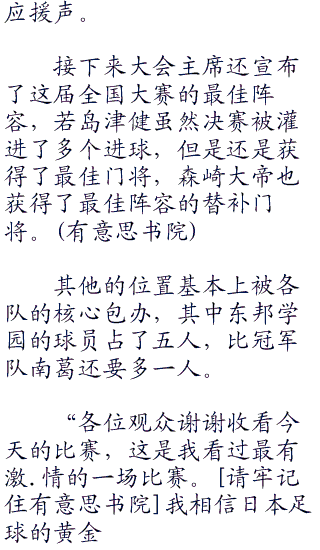 应援声。
接下来大会主席还宣布
了这届全国大赛的最佳阵
容，若岛津健虽然决赛被灌
进了多个进球，但是还是获
得了最佳门将，森崎大帝也
获得了最佳阵容的替补门
将。(有意思书院)
其他的位置基本上被各
队的核心包办，其中东邦学
园的球员占了五人，比冠军
队南葛还要多一人。
“各位观众谢谢收看今
天的比赛，这是我看过最有
激.情的一场比赛。[请牢记
住有意思书院]我相信日本足
球的黄金